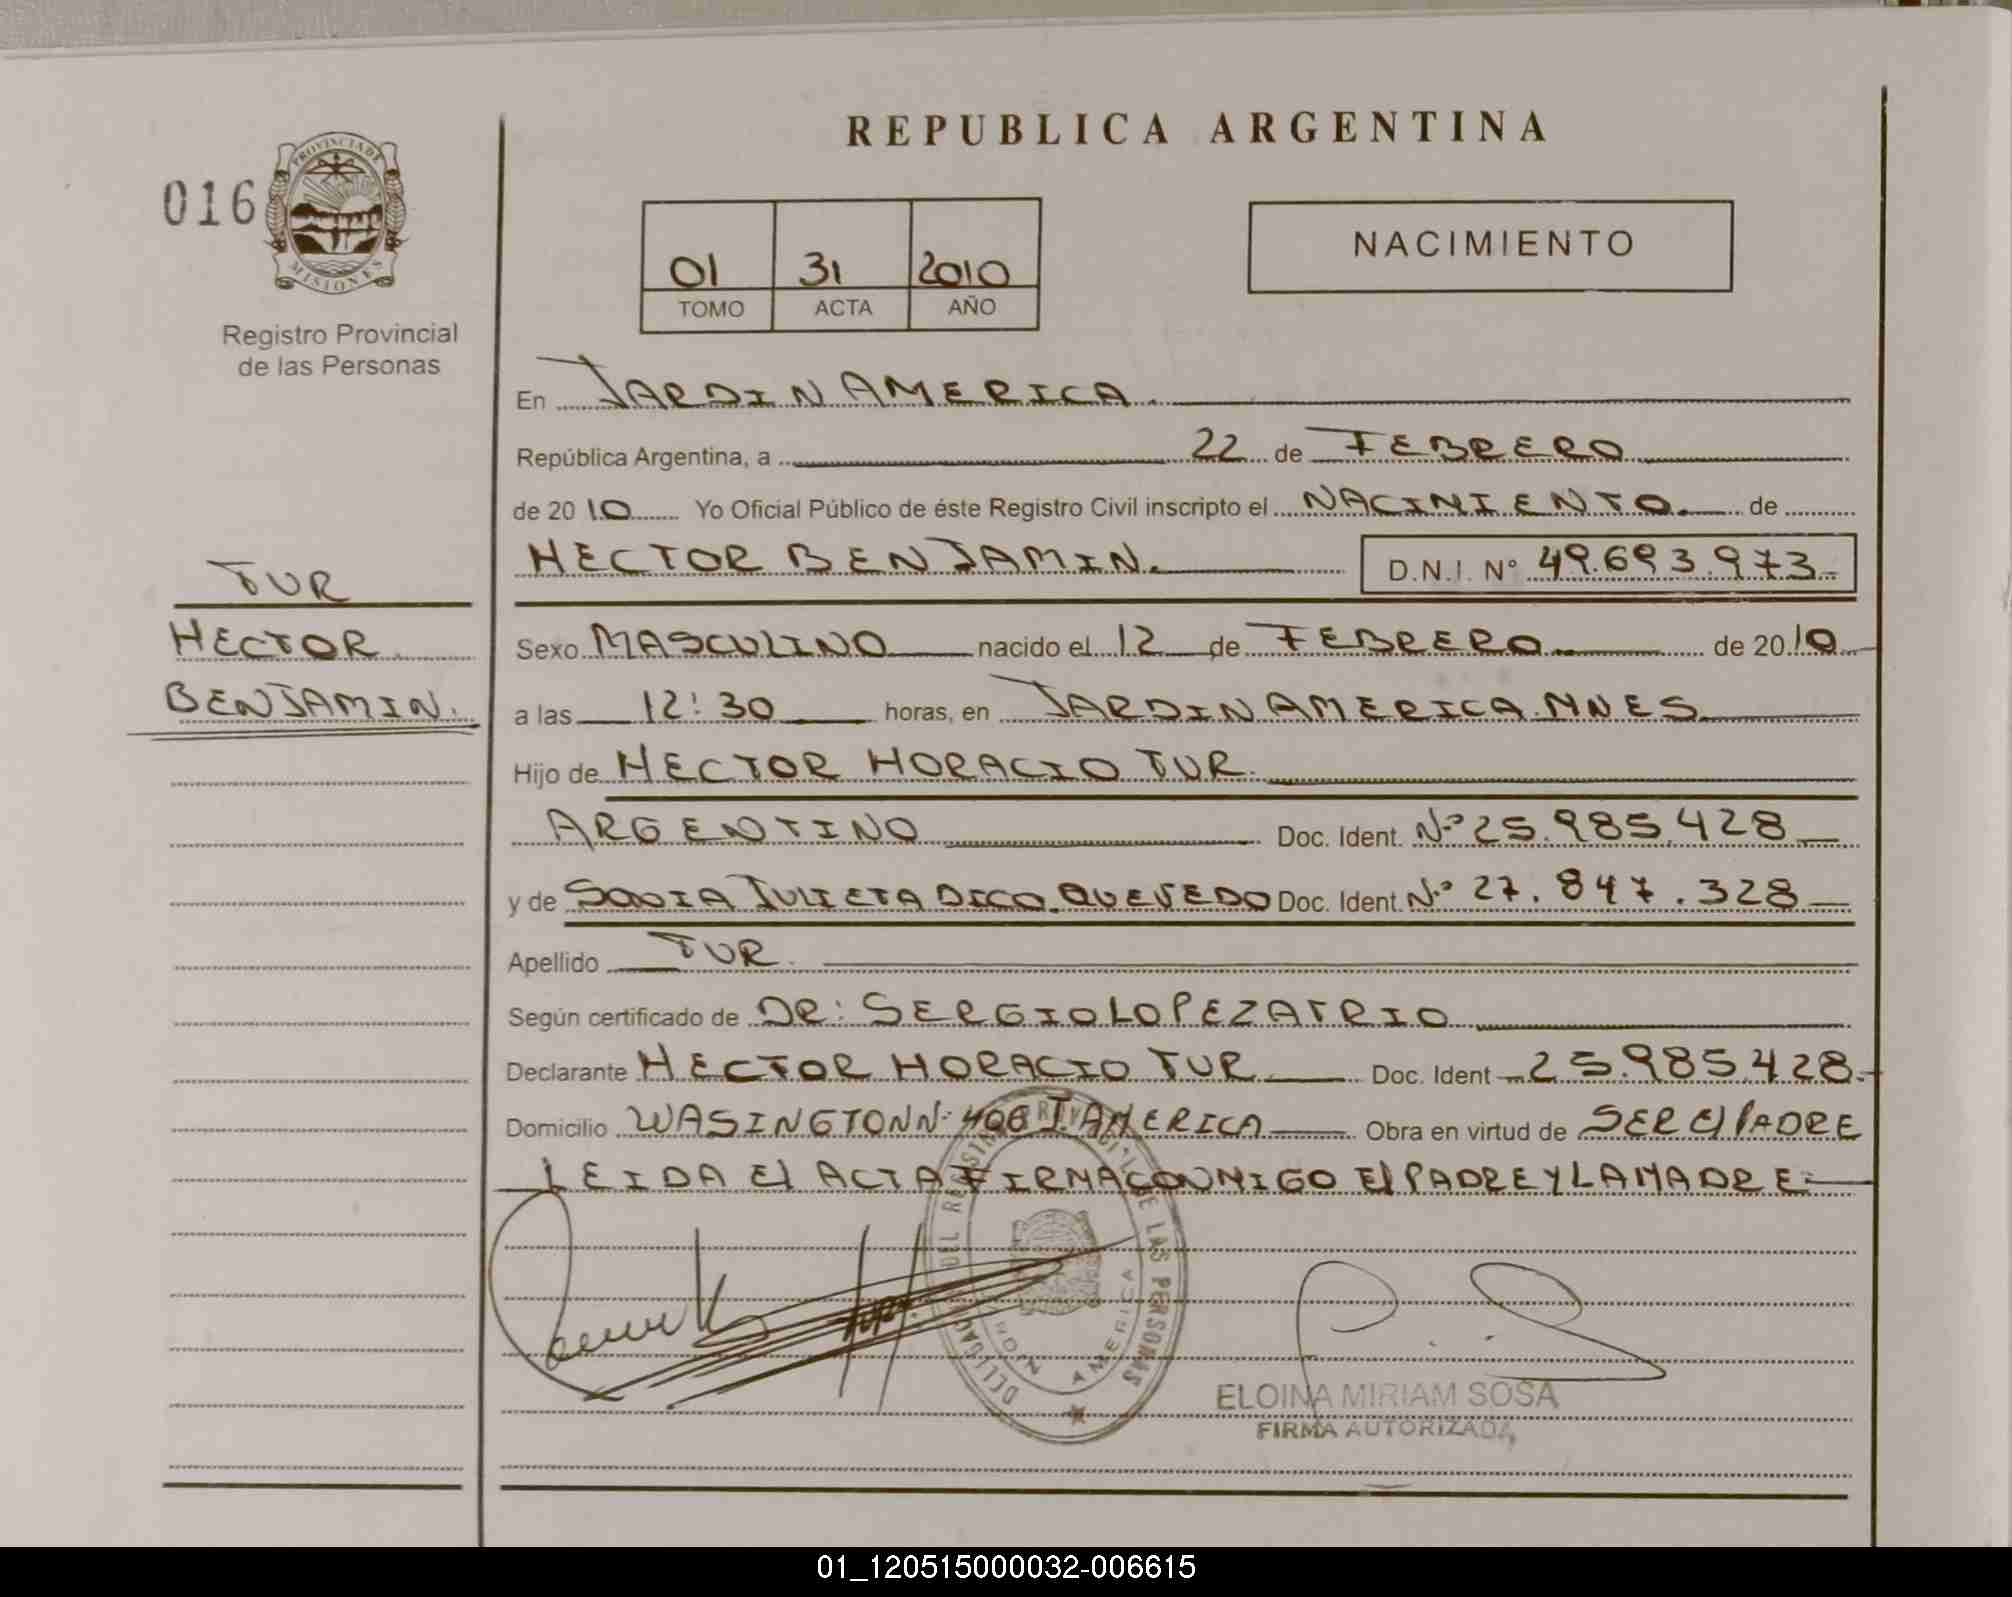 REPUBLICA ARGENTINA
016
PROVINCIA DE
MISIONES
Registro Provincial
de las Personas
01 31 2010
TOMO ACTA AÑO
NACIMIENTO
En JARDIN AMERICA.
República Argentina, a 22 de FEBRERO
de 2010 Yo Oficial Público de éste Registro Civil inscripto el NACIMIENTO. de
HECTOR BENJAMIN. D.N.I. N° 49.693.973
TUR
HECTOR
BENJAMIN.
Sexo MASCULINO nacido el 12 de FEBRERO de 2010
a las 12:30 horas, en JARDIN AMERICA. MNES
Hijo de HECTOR HORACIO TUR.
ARGENTINO Doc. Ident. Nº 25.985.428
y de SONIA JULIETA DICO. QUEVEDO Doc. Ident. Nº 27.847.328
Apellido TUR.
Según certificado de DR: SERGIO LOPEZ ATRIO
Declarante HECTOR HORACIO TUR Doc. Ident 25.985.428.
Domicilio WASINGTON Nº 406 J. AMERICA Obra en virtud de SER El PADRE
LEIDA El ACTA FIRMA CONMIGO El PADRE Y LA MADRE
DELEGACION DEL REGISTRO PROVINCIAL DE LAS PERSONAS
JARDIN AMERICA
ELOINA MIRIAM SOSA
FIRMA AUTORIZADA
01_120515000032-006615